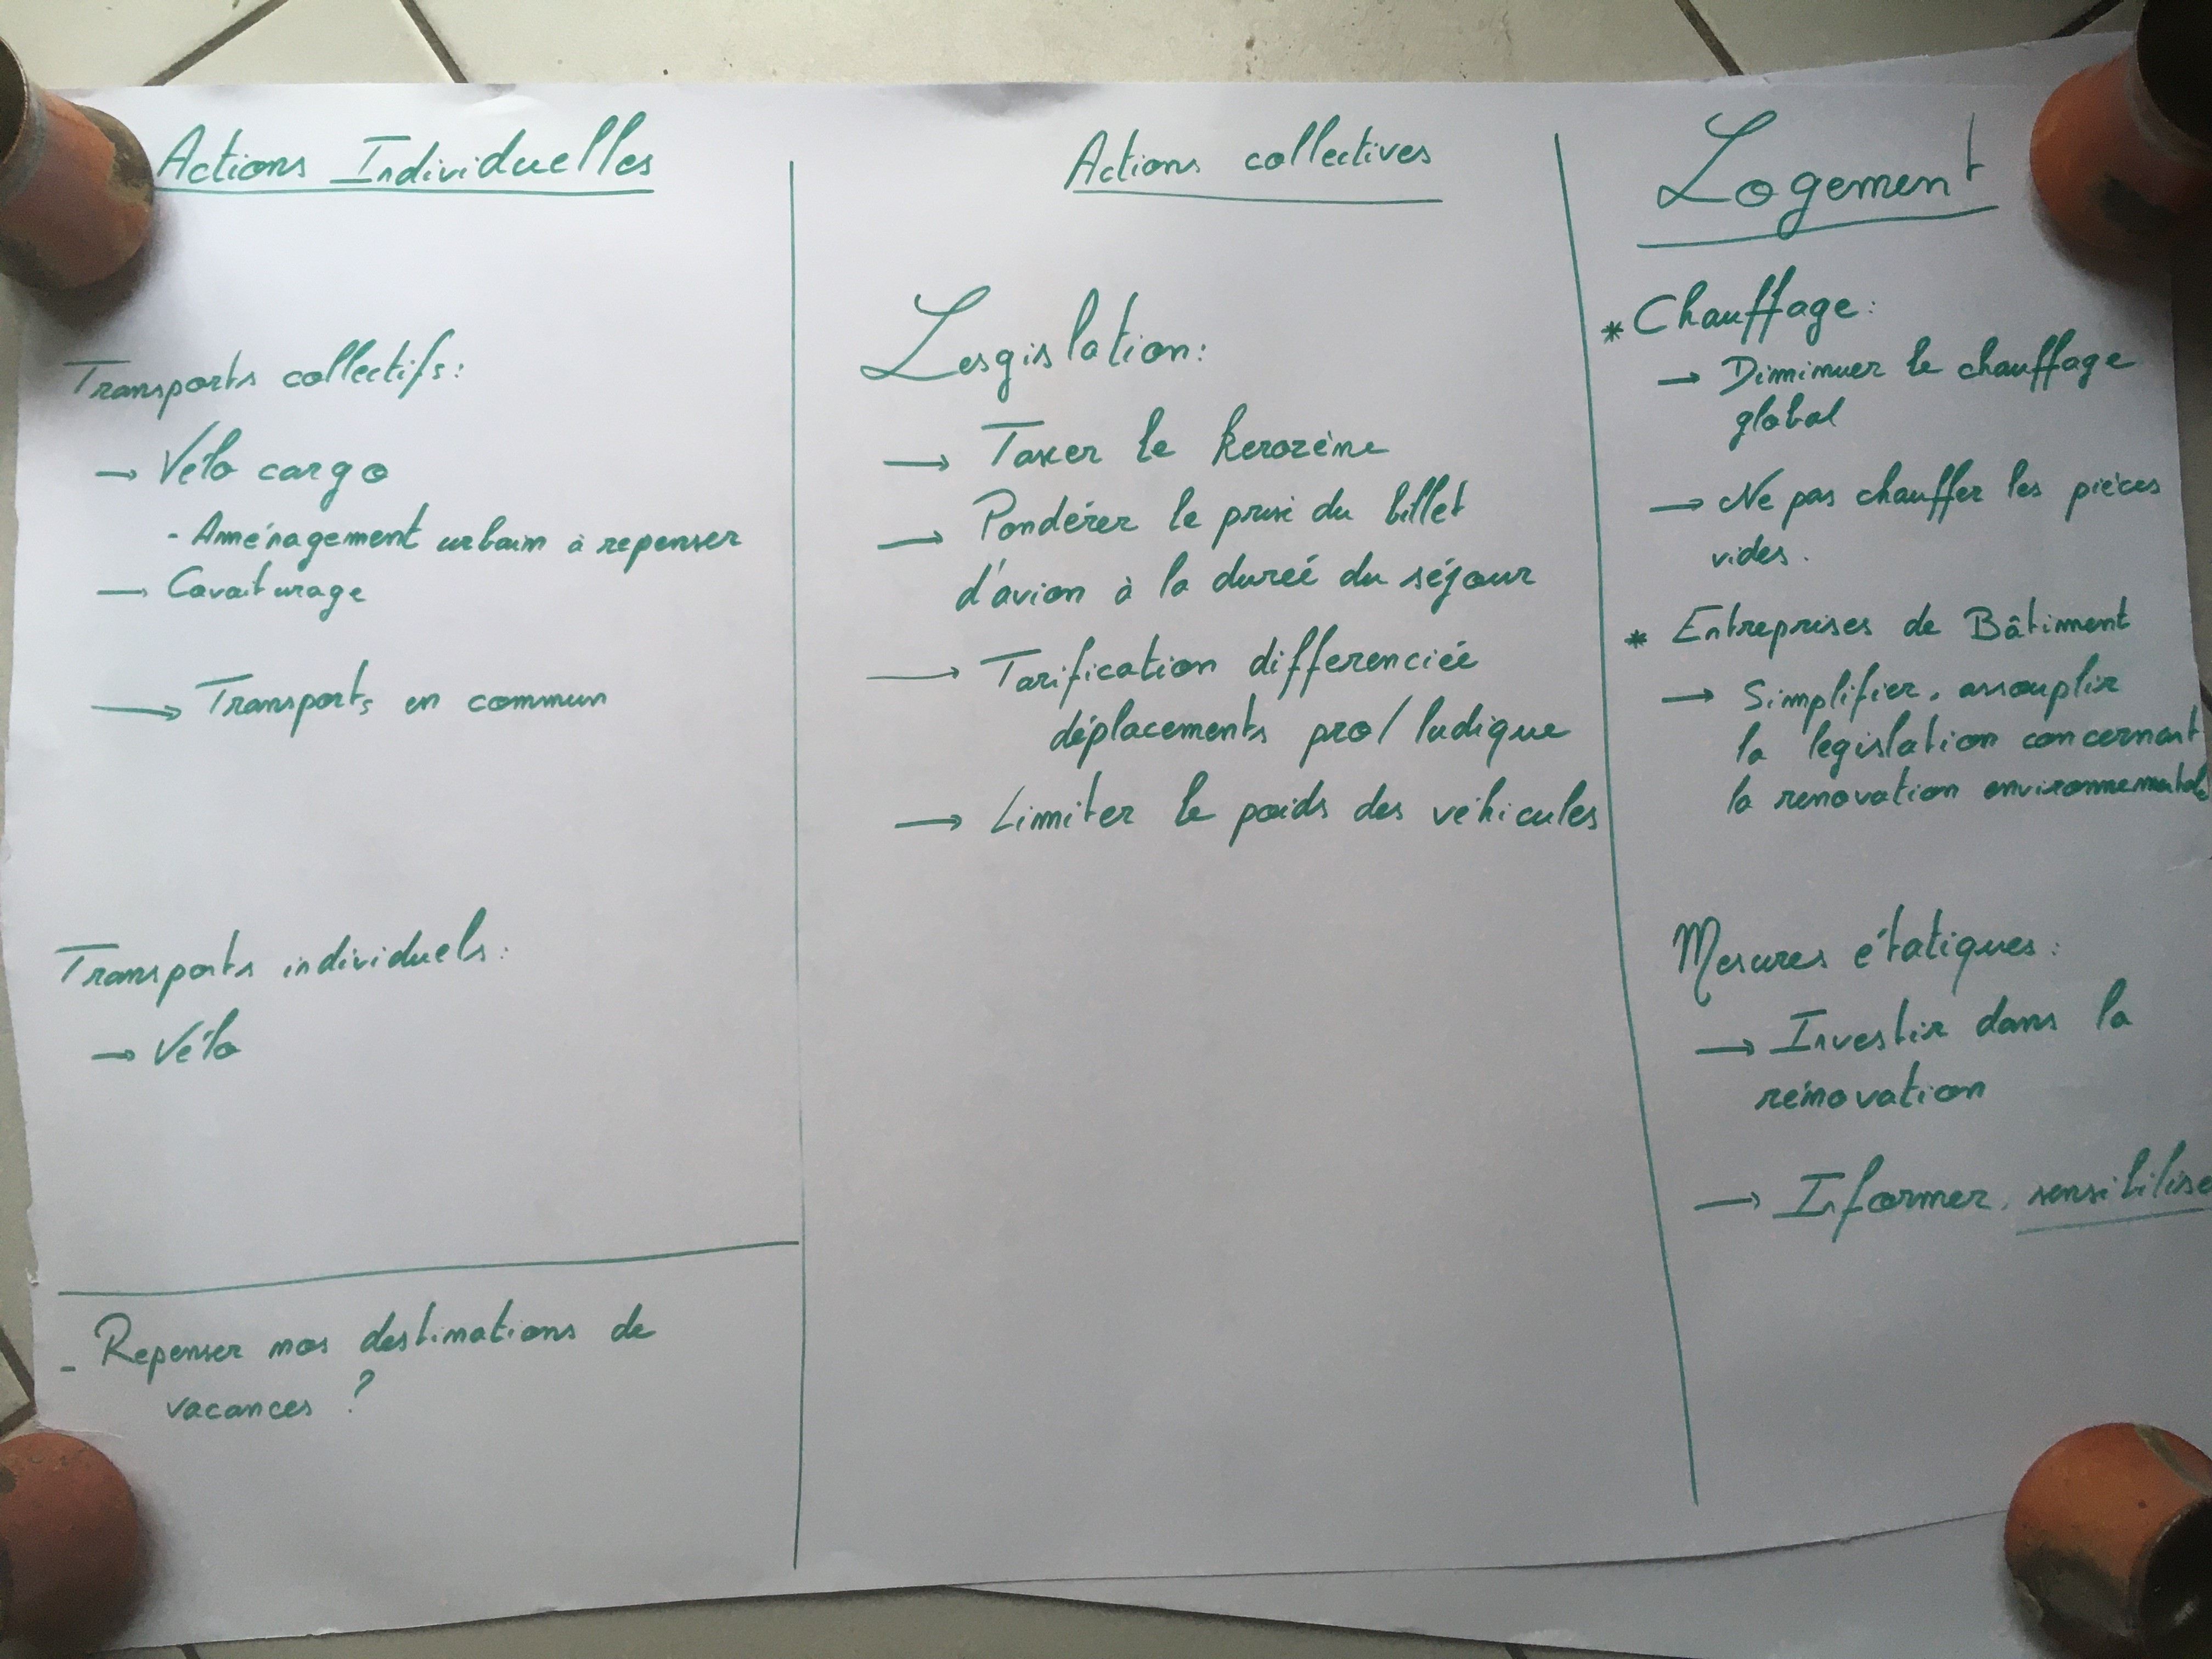 Actions Individuelles
Transports collectifs:
→ Vélo cargo
- Aménagement urbain à repenser
→ Covoiturage
→ Transports en commun
Transports individuels:
→ Vélo
- Repenser nos destinations de
vacances ?
Actions collectives
Lesgislation:
→ Taxer le kerozène
→ Pondérer le prix du billet
d'avion à la dureé du séjour
→ Tarification differenciée
déplacements pro/ludique
→ Limiter le poids des véhicules
Logement
* Chauffage:
→ Diminuer le chauffage
global
→ Ne pas chauffer les pièces
vides.
* Entreprises de Bâtiment
→ Simplifier, assouplir
la législation concernant
la renovation environnementale
Mesures étatiques:
→ Investir dans la
rénovation
→ Informer, sensibilise